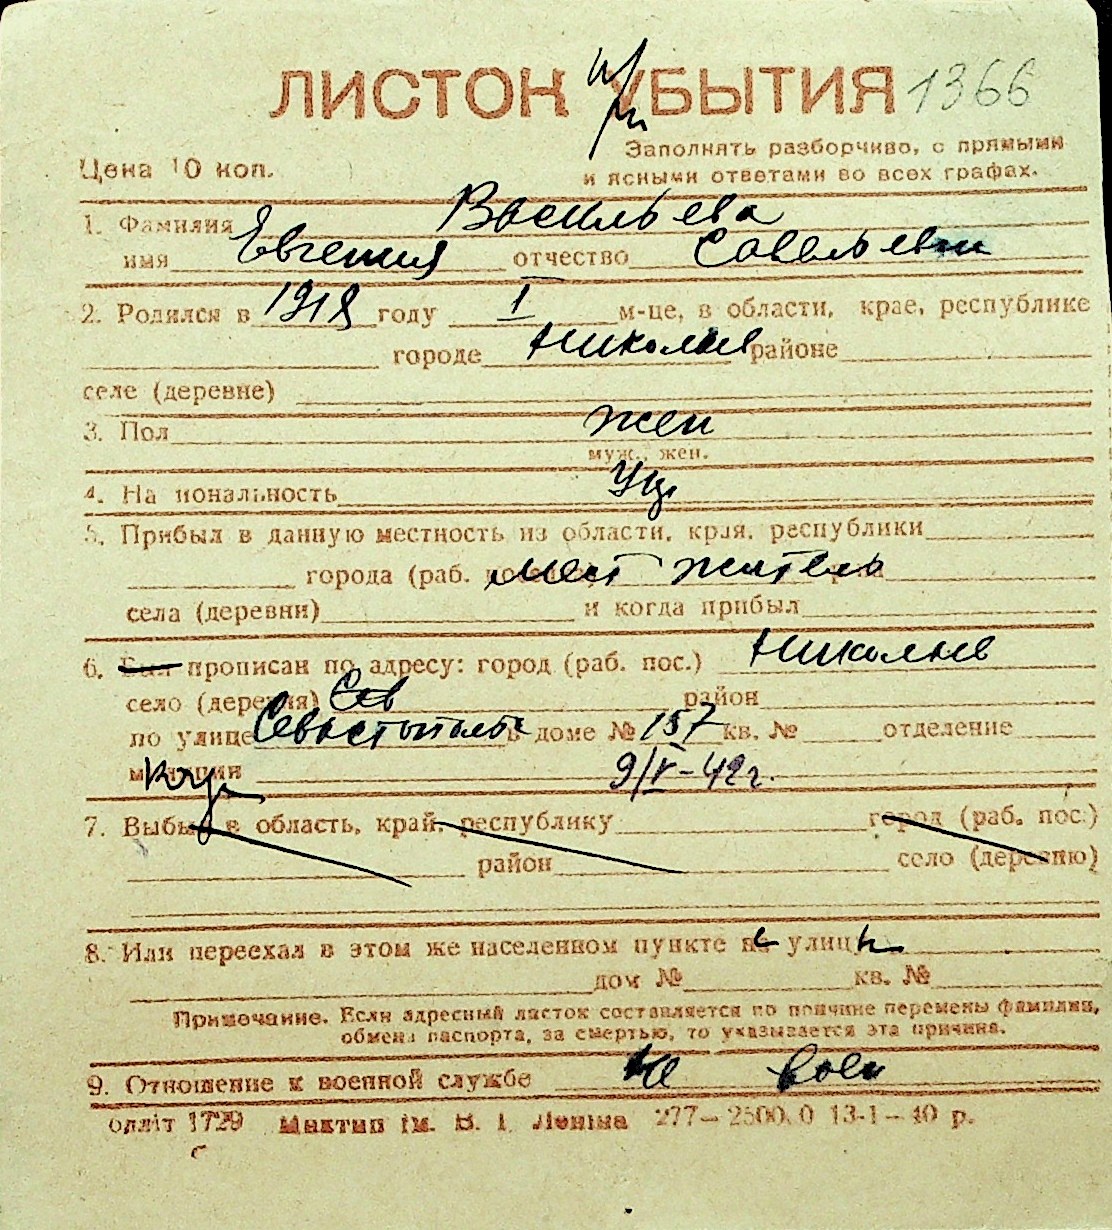 ЛИСТОК УБЫТИЯ 1366
Цена 10 коп.
Заполнять разборчиво, с прямыми
и ясными ответами во всех графах.
1. Фамилия Васильева
имя Евгения отчество Савельевн
2. Родился в 1918 году I м-це, в области, крае, республике
городе Николаев районе
селе (деревне)
3. Пол жен
муж., жен.
4. Национальность Укр
5. Прибыл в данную местность из области, края, республики
города (раб. мест житель
села (деревни) и когда прибыл
6. прописан по адресу: город (раб. пос.) Николаев
село (деревня) Сев район
по улице Севастополь в доме № 157 кв. № отделение
милиции 9/V-42г.
7. Выбыл в область, край, республику город (раб. пос.)
район село (деревню)
8. Или переехал в этом же населенном пункте улиц
дом № кв. №
Примечание. Если адресный листок составляется по причине перемены фамилии,
обмена паспорта, за смертью, то указывается эта причина.
9. Отношение к военной службе не воен
блліт 1729 Миктип ім. В. І. Леніна 277—2500.0 13-1—40 р.